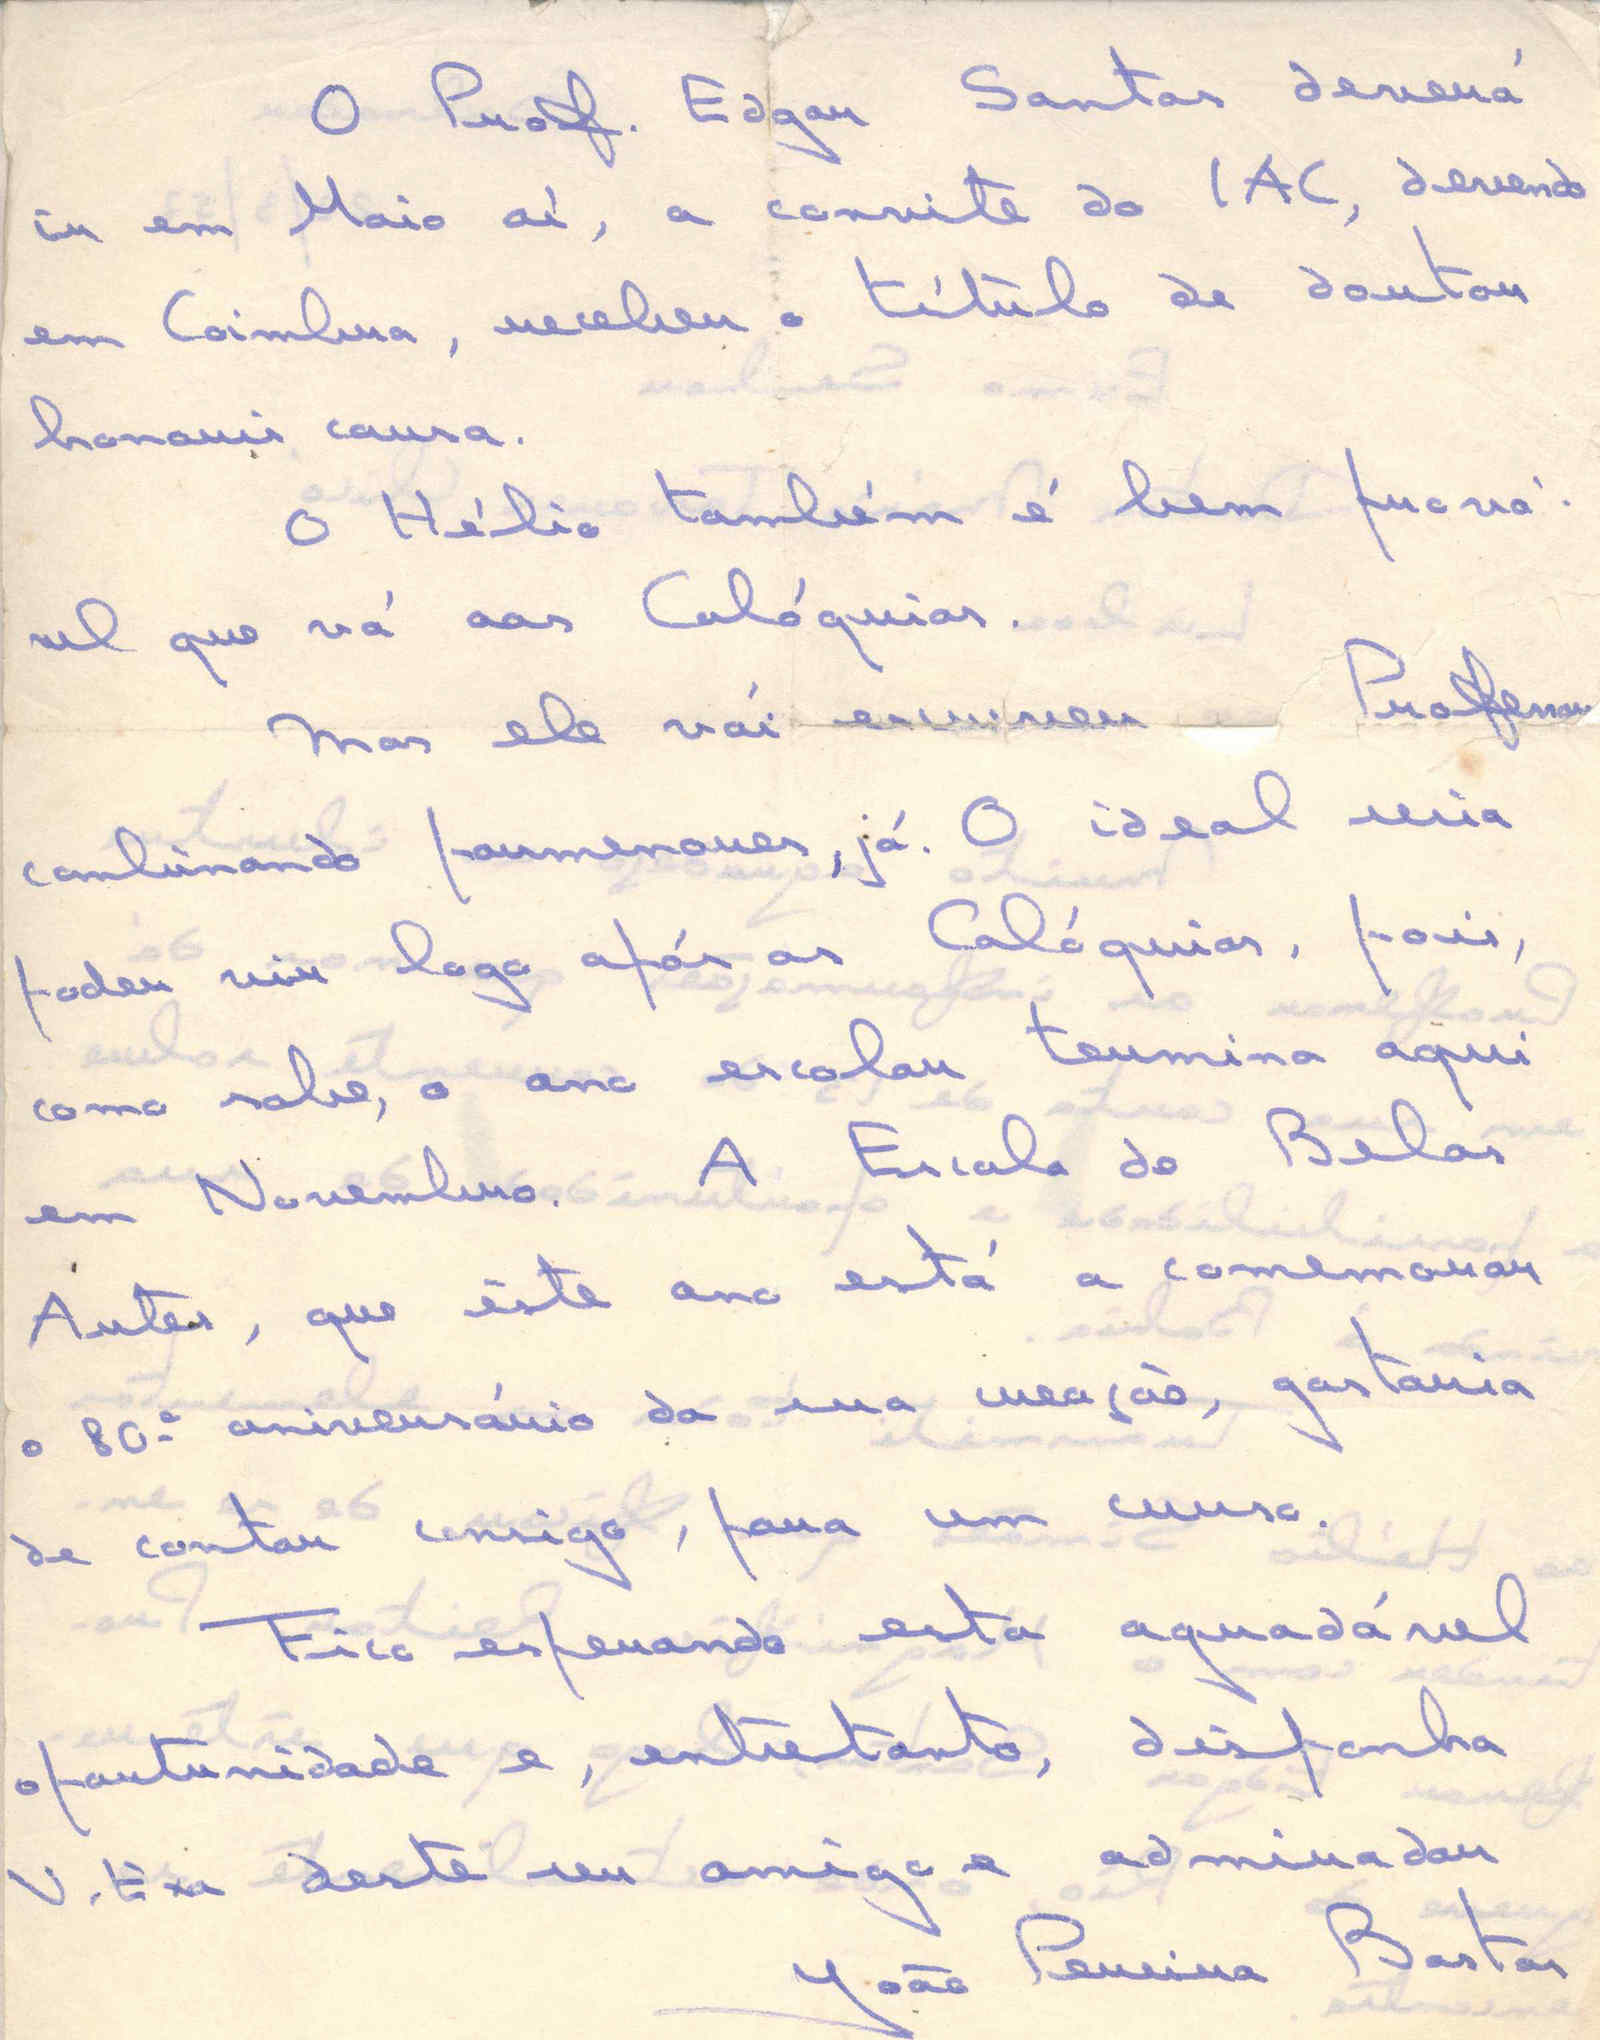 O Prof. Edgar Santos deverá
ir em Maio aí, a convite do IAC, devendo
em Coimbra, receber o título de doutor
honoris causa.
O Hélio também é bem prová-
vel que vá aos Colóquios.
Mas ele vai escrever Professor
combinando pormenores, já. O ideal seria
poder vir logo após os Colóquios, pois,
como sabe, o ano escolar termina aqui
em Novembro. A Escola de Belas
Artes, que êste ano está a comemorar
o 80º aniversário da sua creação, gostaria
de contar consigo, para um curso.
Fico esperando esta agradável
oportunidade e, entretanto, disponha
V. Exa deste seu amigo e admirador
João Pereira Bastos